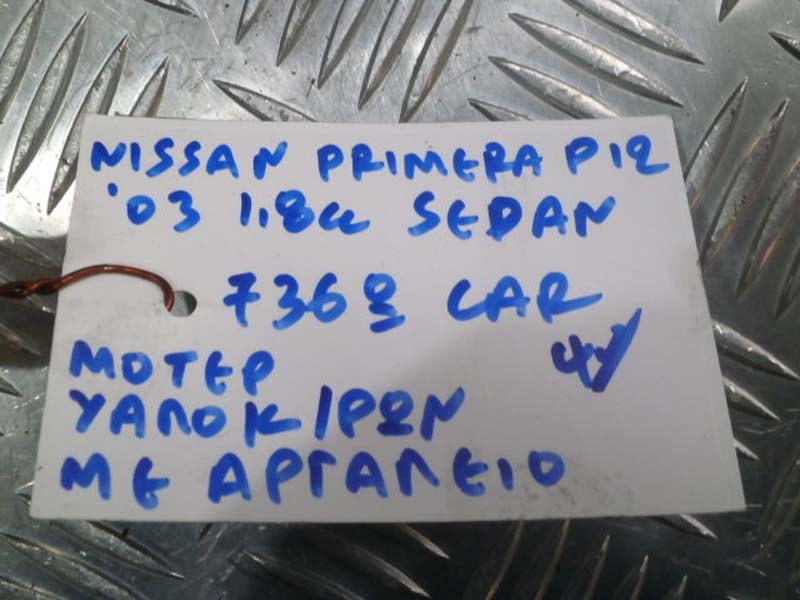 NISSAN PRIMERA P12
'03 1.8cc SEDAN
736º CAR
ΜΟΤΕΡ
ΥΑΛΟΚ/ΡΩΝ
ΜΕ ΑΡΓΑΛΕΙΟ